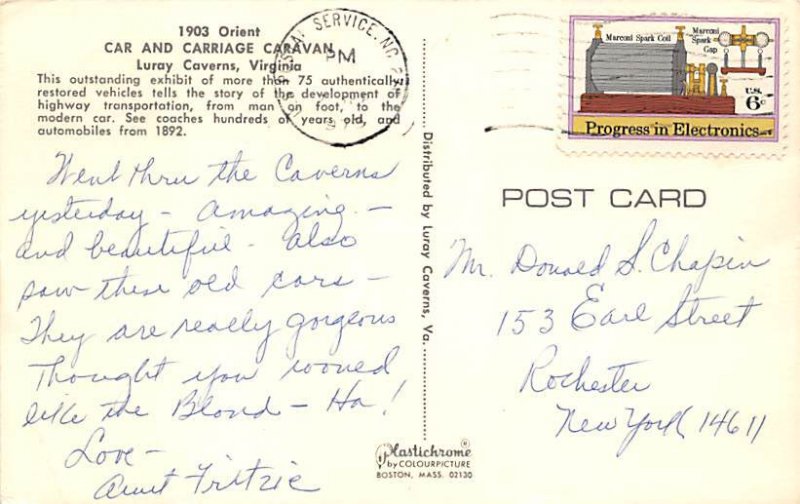 1903 Orient
CAR AND CARRIAGE CARAVAN
Luray Caverns, Virginia
This outstanding exhibit of more than 75 authentically
restored vehicles tells the story of the development of
highway transportation, from man on foot, to the
modern car. See coaches hundreds of years old, and
automobiles from 1892.
Went thru the Caverns
yesterday - Amazing -
and beautiful - Also
saw these old cars -
They are really gorgeous
Thought you wooued
like the Blond - Ha!
Love -
Aunt Fritzie
Distributed by Luray Caverns, Va.
Plastichrome
by COLOURPICTURE
BOSTON, MASS. 02130
SERVICE, NC
PM
Marconi Spark Coil
Marconi
Spark
Gap
U.S.
6c
Progress in Electronics
POST CARD
Mr. Donald S. Chapin
153 Earl Street
Rochester
New York 14611